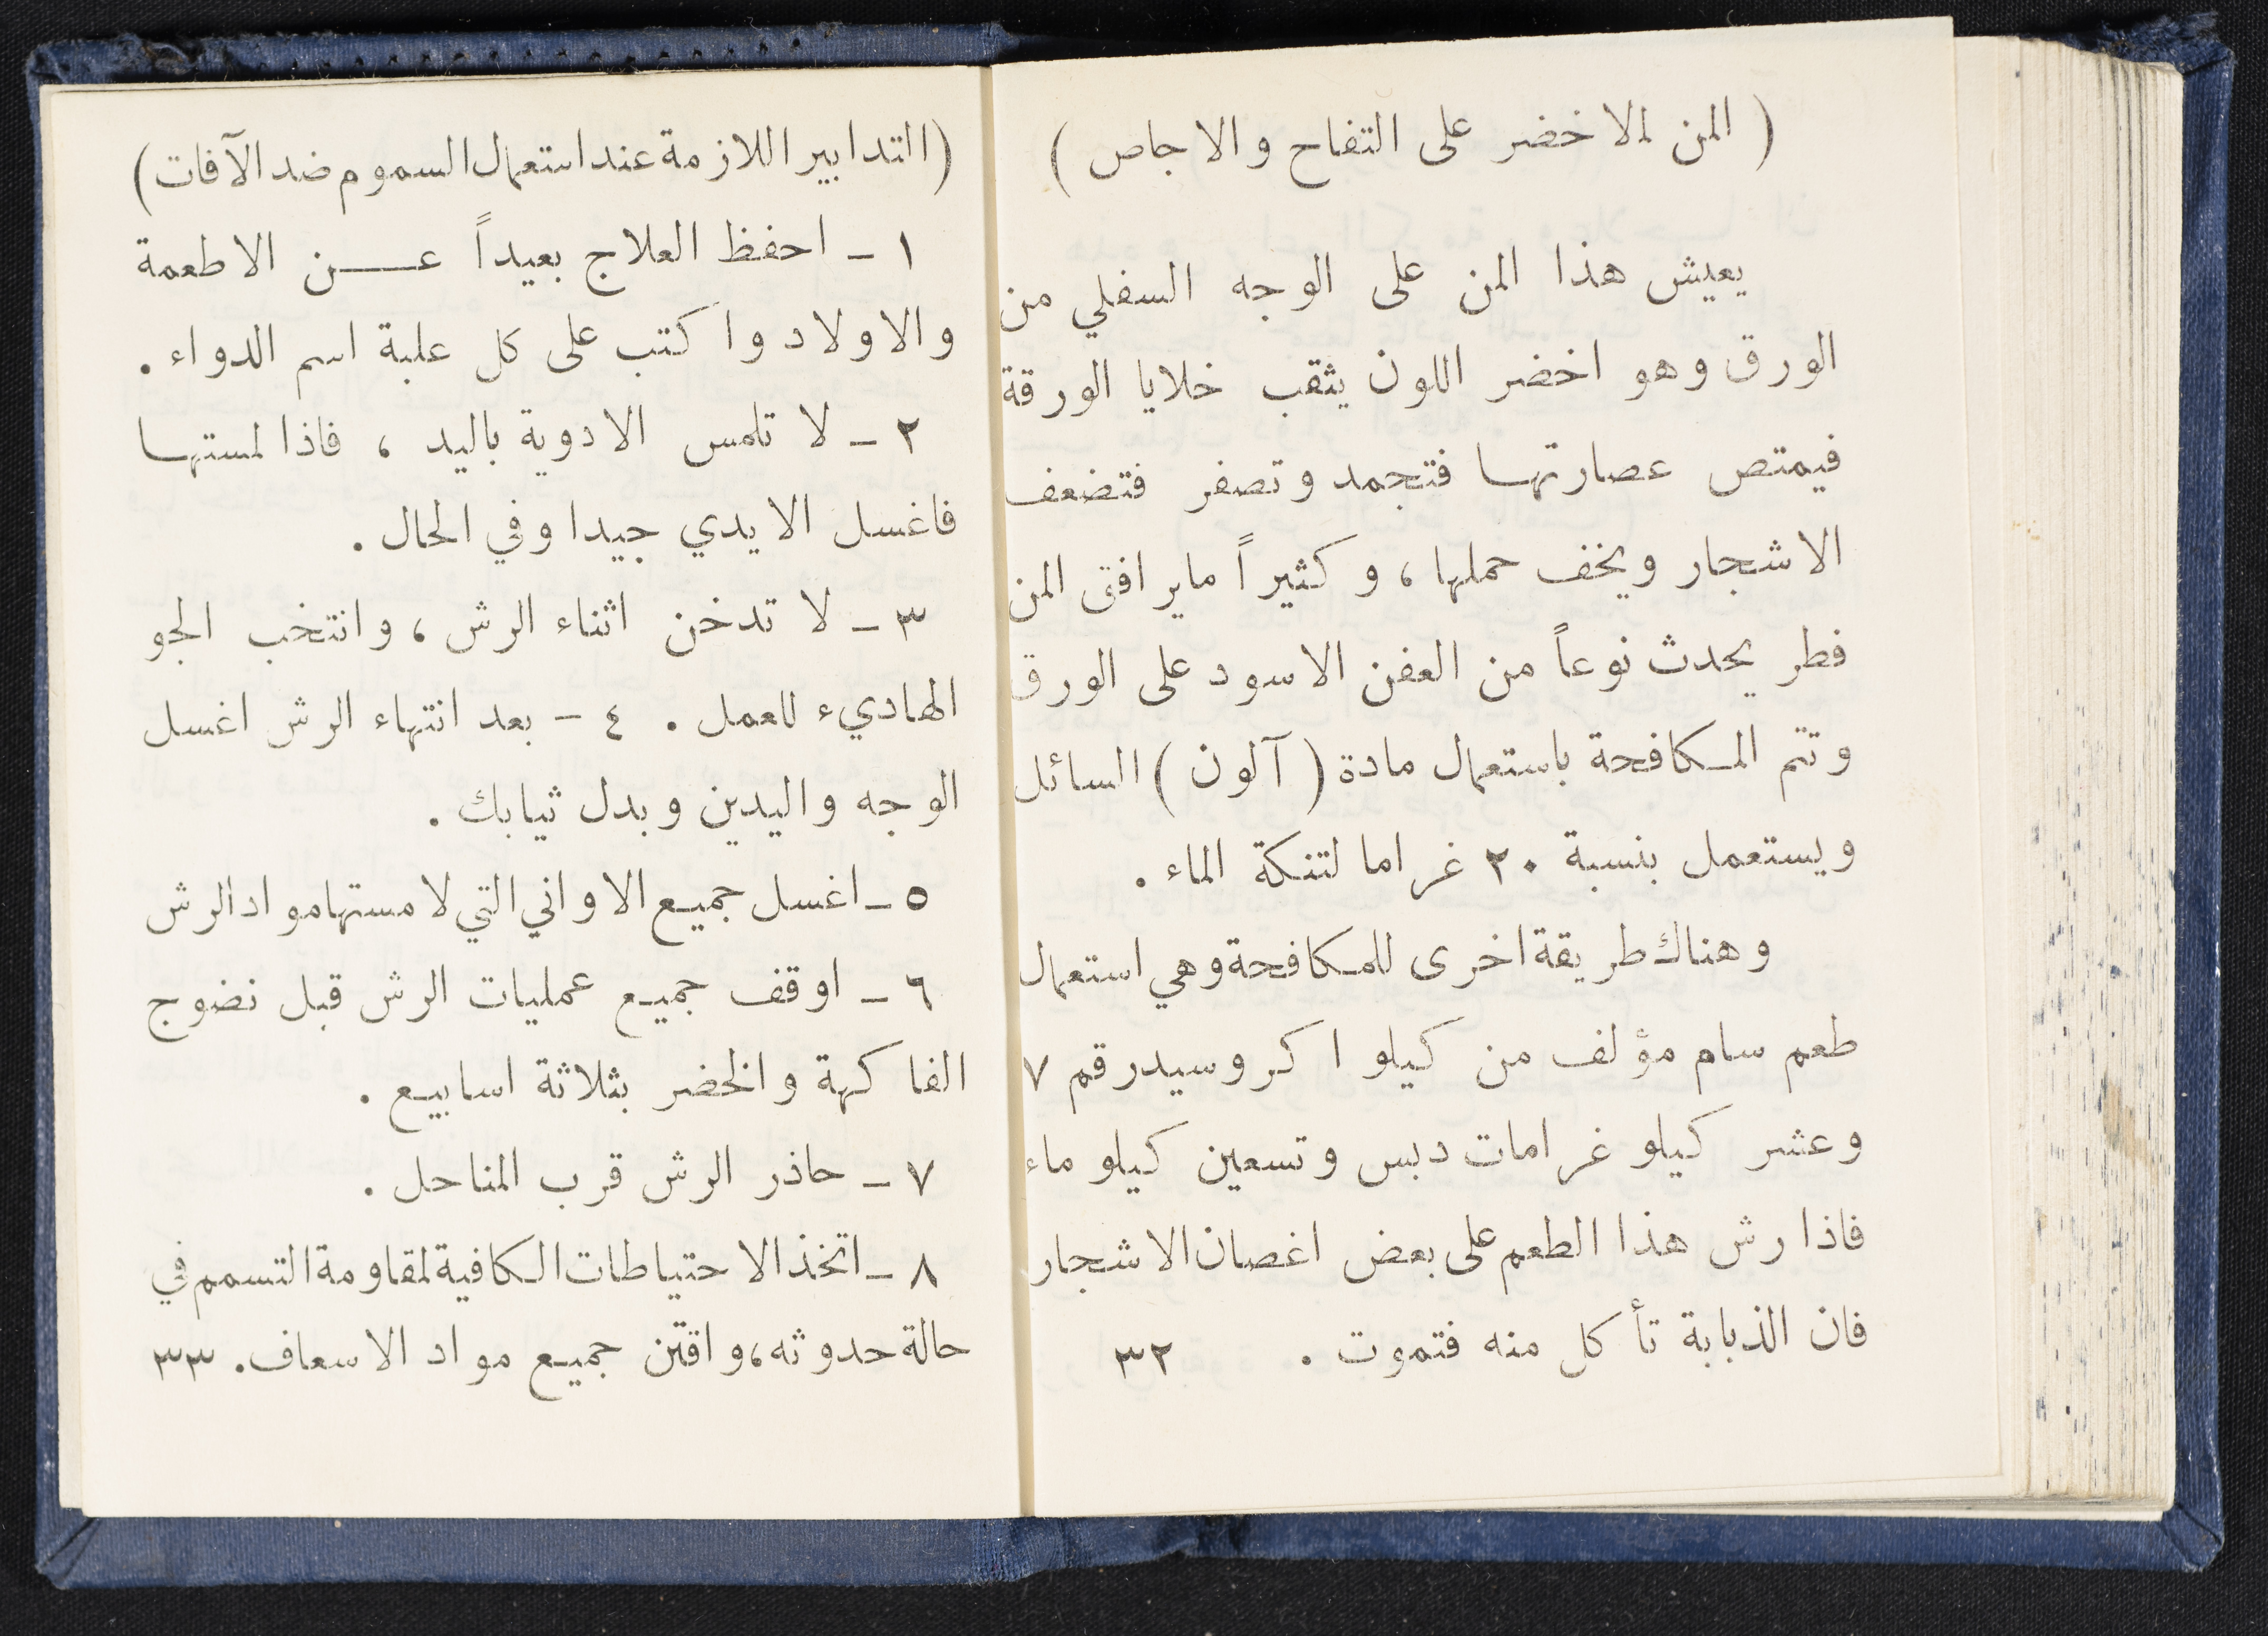 ( المن الاخضر على التفاح والاجاص )
يعيش هذا المن على الوجه السفلي من
الورق وهو اخضر اللون يثقب خلايا الورقة
فيمتص عصارتها فتجمد وتصفر فتضعف
الاشجار ويخف حملها ، وكثيراً مايرافق المن
فطر يحدث نوعاً من العفن الاسود على الورق
وتتم المكافحة باستعمال مادة ( آلون ) السائل
ويستعمل بنسبة ٢٠ غراما لتنكة الماء .
وهناك طريقة اخرى للمكافحة وهي استعمال
طعم سام مؤلف من كيلو اكروسيد رقم ٧
وعشر كيلو غرامات دبس وتسعين كيلو ماء
فاذا رش هذا الطعم على بعض اغصان الاشجار
فان الذبابة تأكل منه فتموت . ٣٢
(التدابير اللازمة عند استعمال السموم ضد الآفات)
١ – احفظ العلاج بعيداً عن الاطعمة
والاولاد واكتب على كل علبة اسم الدواء .
٢ – لا تلمس الادوية باليد ، فاذا لمستها
فاغسل الايدي جيدا وفي الحال .
٣ – لا تدخن اثناء الرش ، وانتخب الجو
الهاديء للعمل . ٤ – بعد انتهاء الرش اغسل
الوجه واليدين وبدل ثيابك .
٥ – اغسل جميع الاواني التي لامستها مواد الرش
٦ – اوقف جميع عمليات الرش قبل نضوج
الفاكهة والخضر بثلاثة اسابيع .
٧ – حاذر الرش قرب المناحل .
٨ – اتخذ الاحتياطات الكافية لمقاومة التسمم في
حالة حدوثه ، واقتن جميع مواد الاسعاف . ٣٣